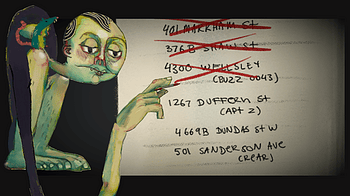 401 MARKHAM ST
376B SHAW ST
4300 WELLSLEY
(BUZZ 0043)
1267 DUFFERN ST
(APT 2)
4669B DUNDAS ST W
501 SANDERSON AVE
(REAR)